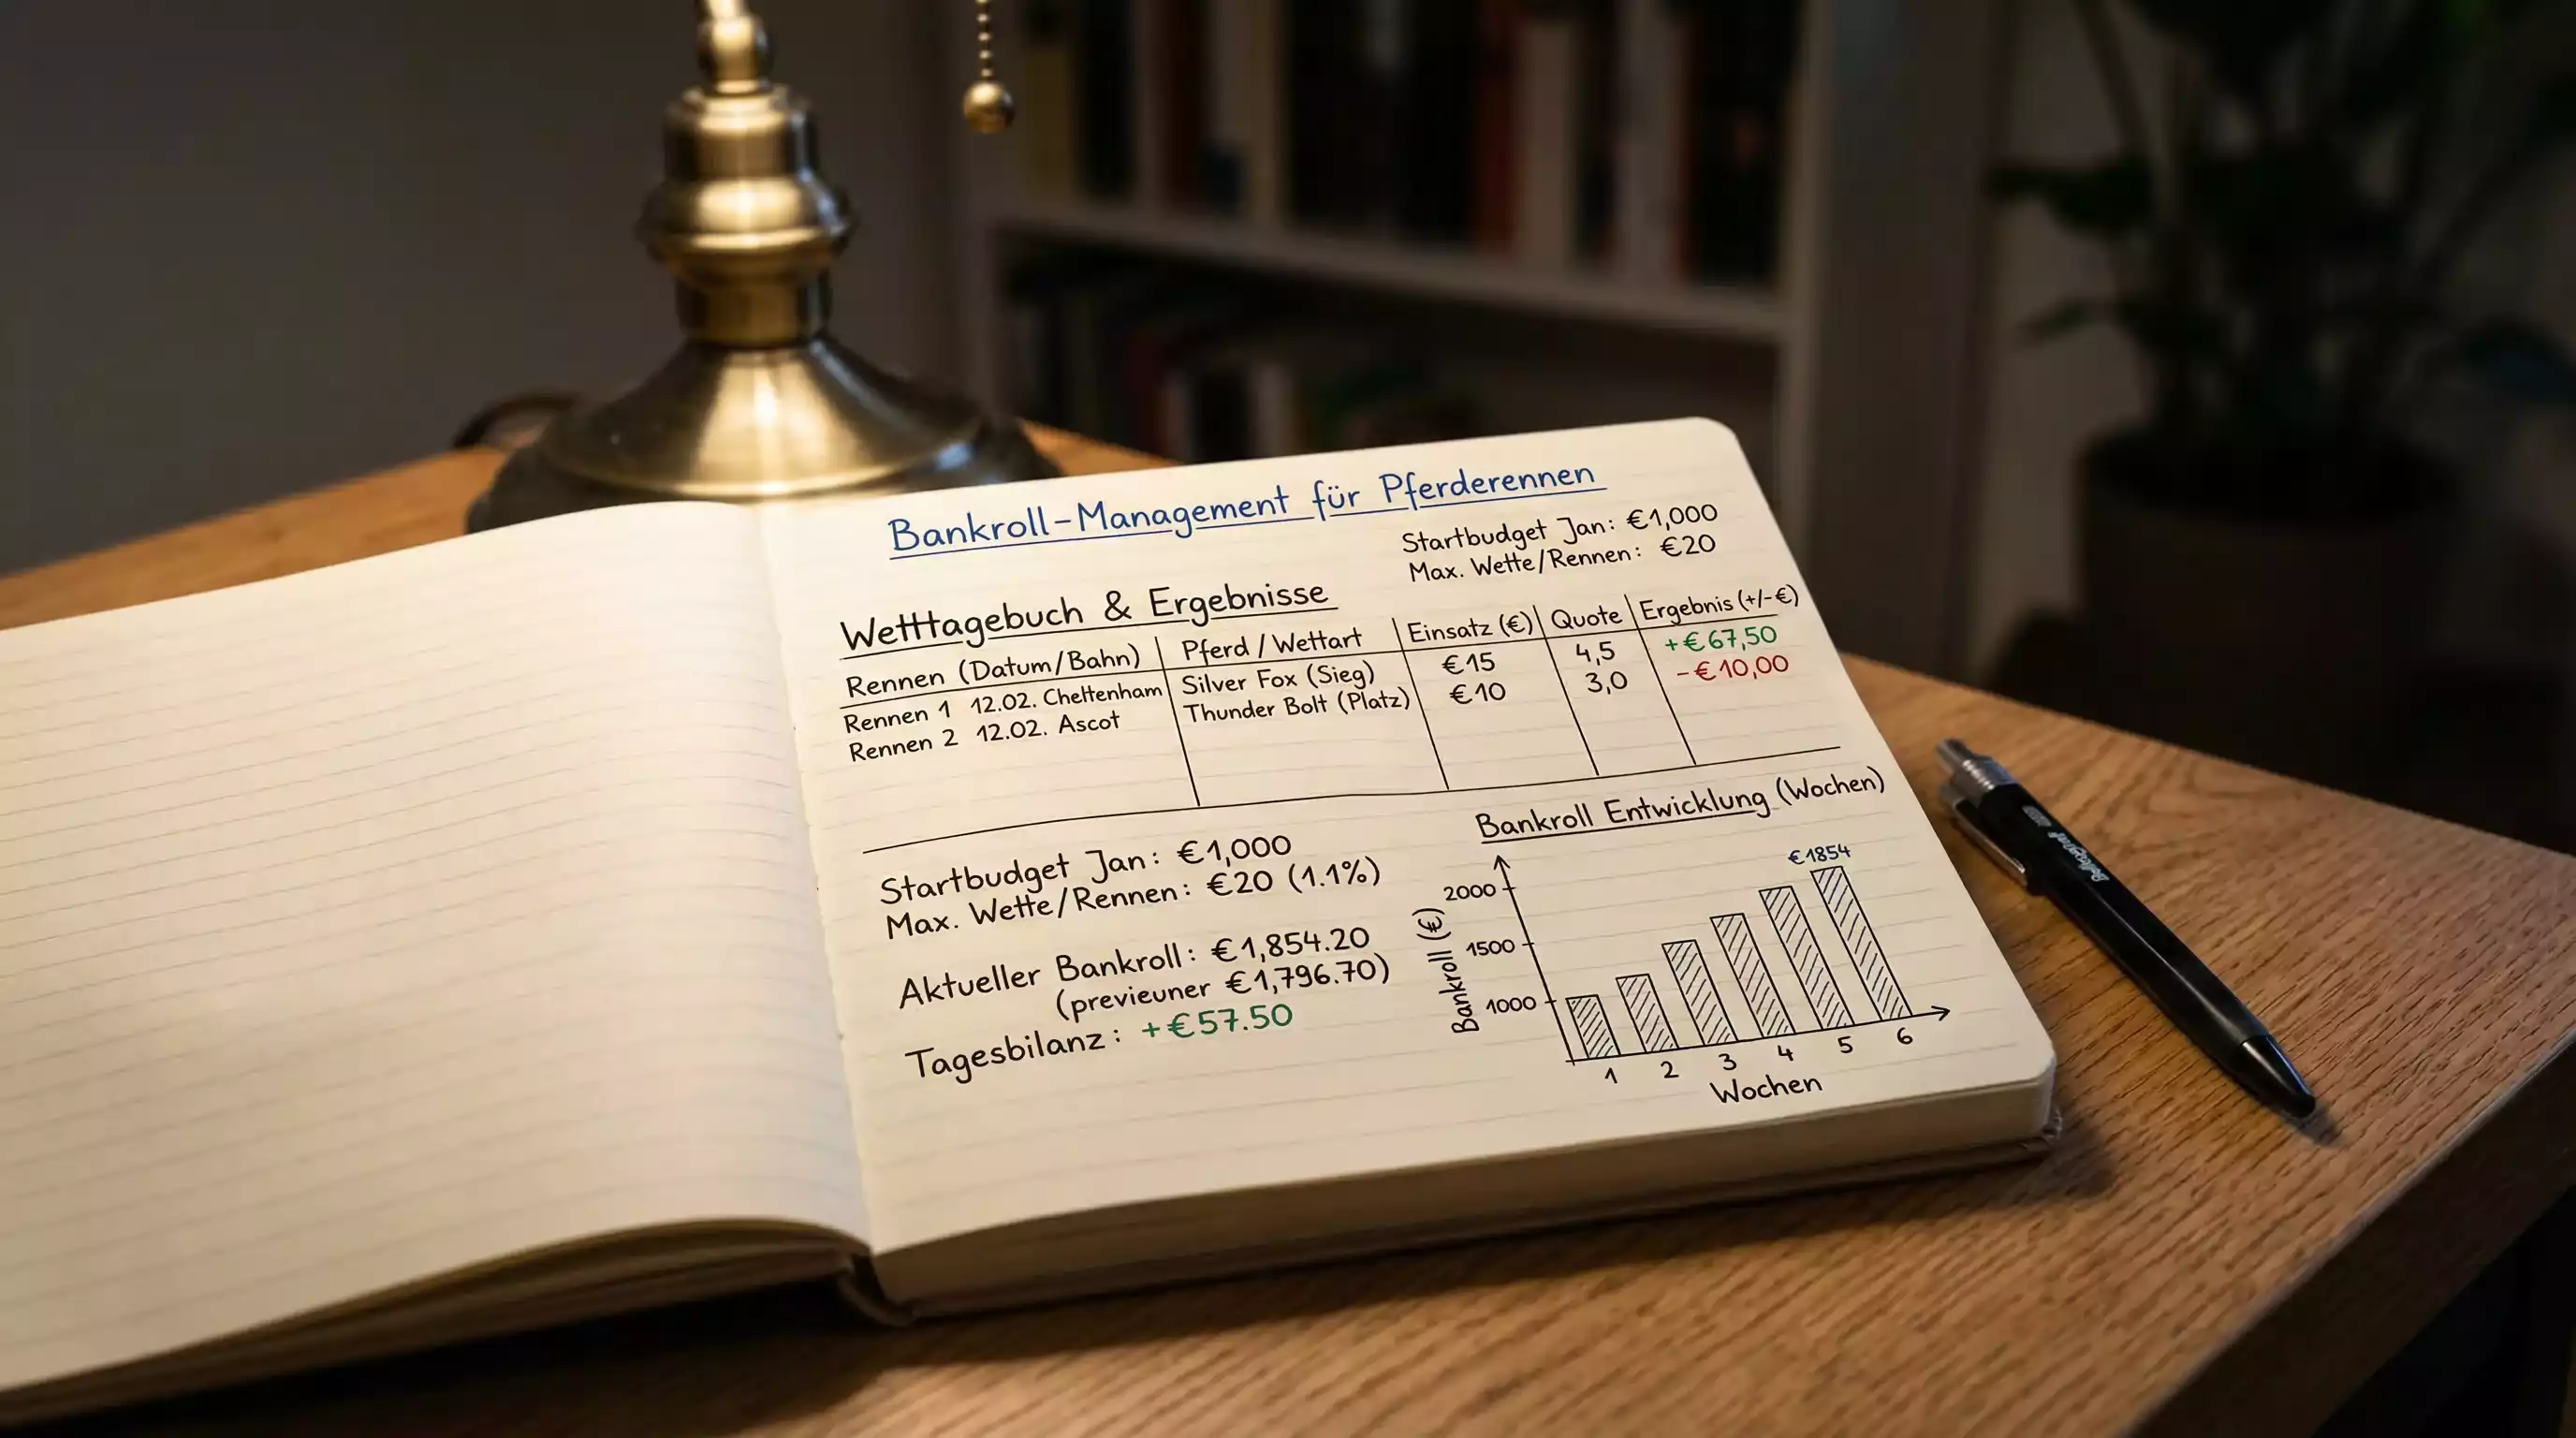 Bankroll-Management für Pferderennen
Startbudget Jan: €1,000
Max. Wette/Rennen: €20
Wetttagebuch & Ergebnisse
Rennen (Datum/Bahn) Pferd / Wettart Einsatz (€) Quote Ergebnis (+/-€)
Rennen 1 12.02. Cheltenham Silver Fox (Sieg) €15 4,5 +€67,50
Rennen 2 12.02. Ascot Thunder Bolt (Platz) €10 3,0 -€10,00
Startbudget Jan: €1,000
Max. Wette/Rennen: €20 (1.1%)
Aktueller Bankroll: €1,854.20
(previeuner €1,796.70)
Tagesbilanz: +€57.50
Bankroll Entwicklung (Wochen)
€1854
2000
1500
1000
Bankroll (€)
1 2 3 4 5 6
Wochen